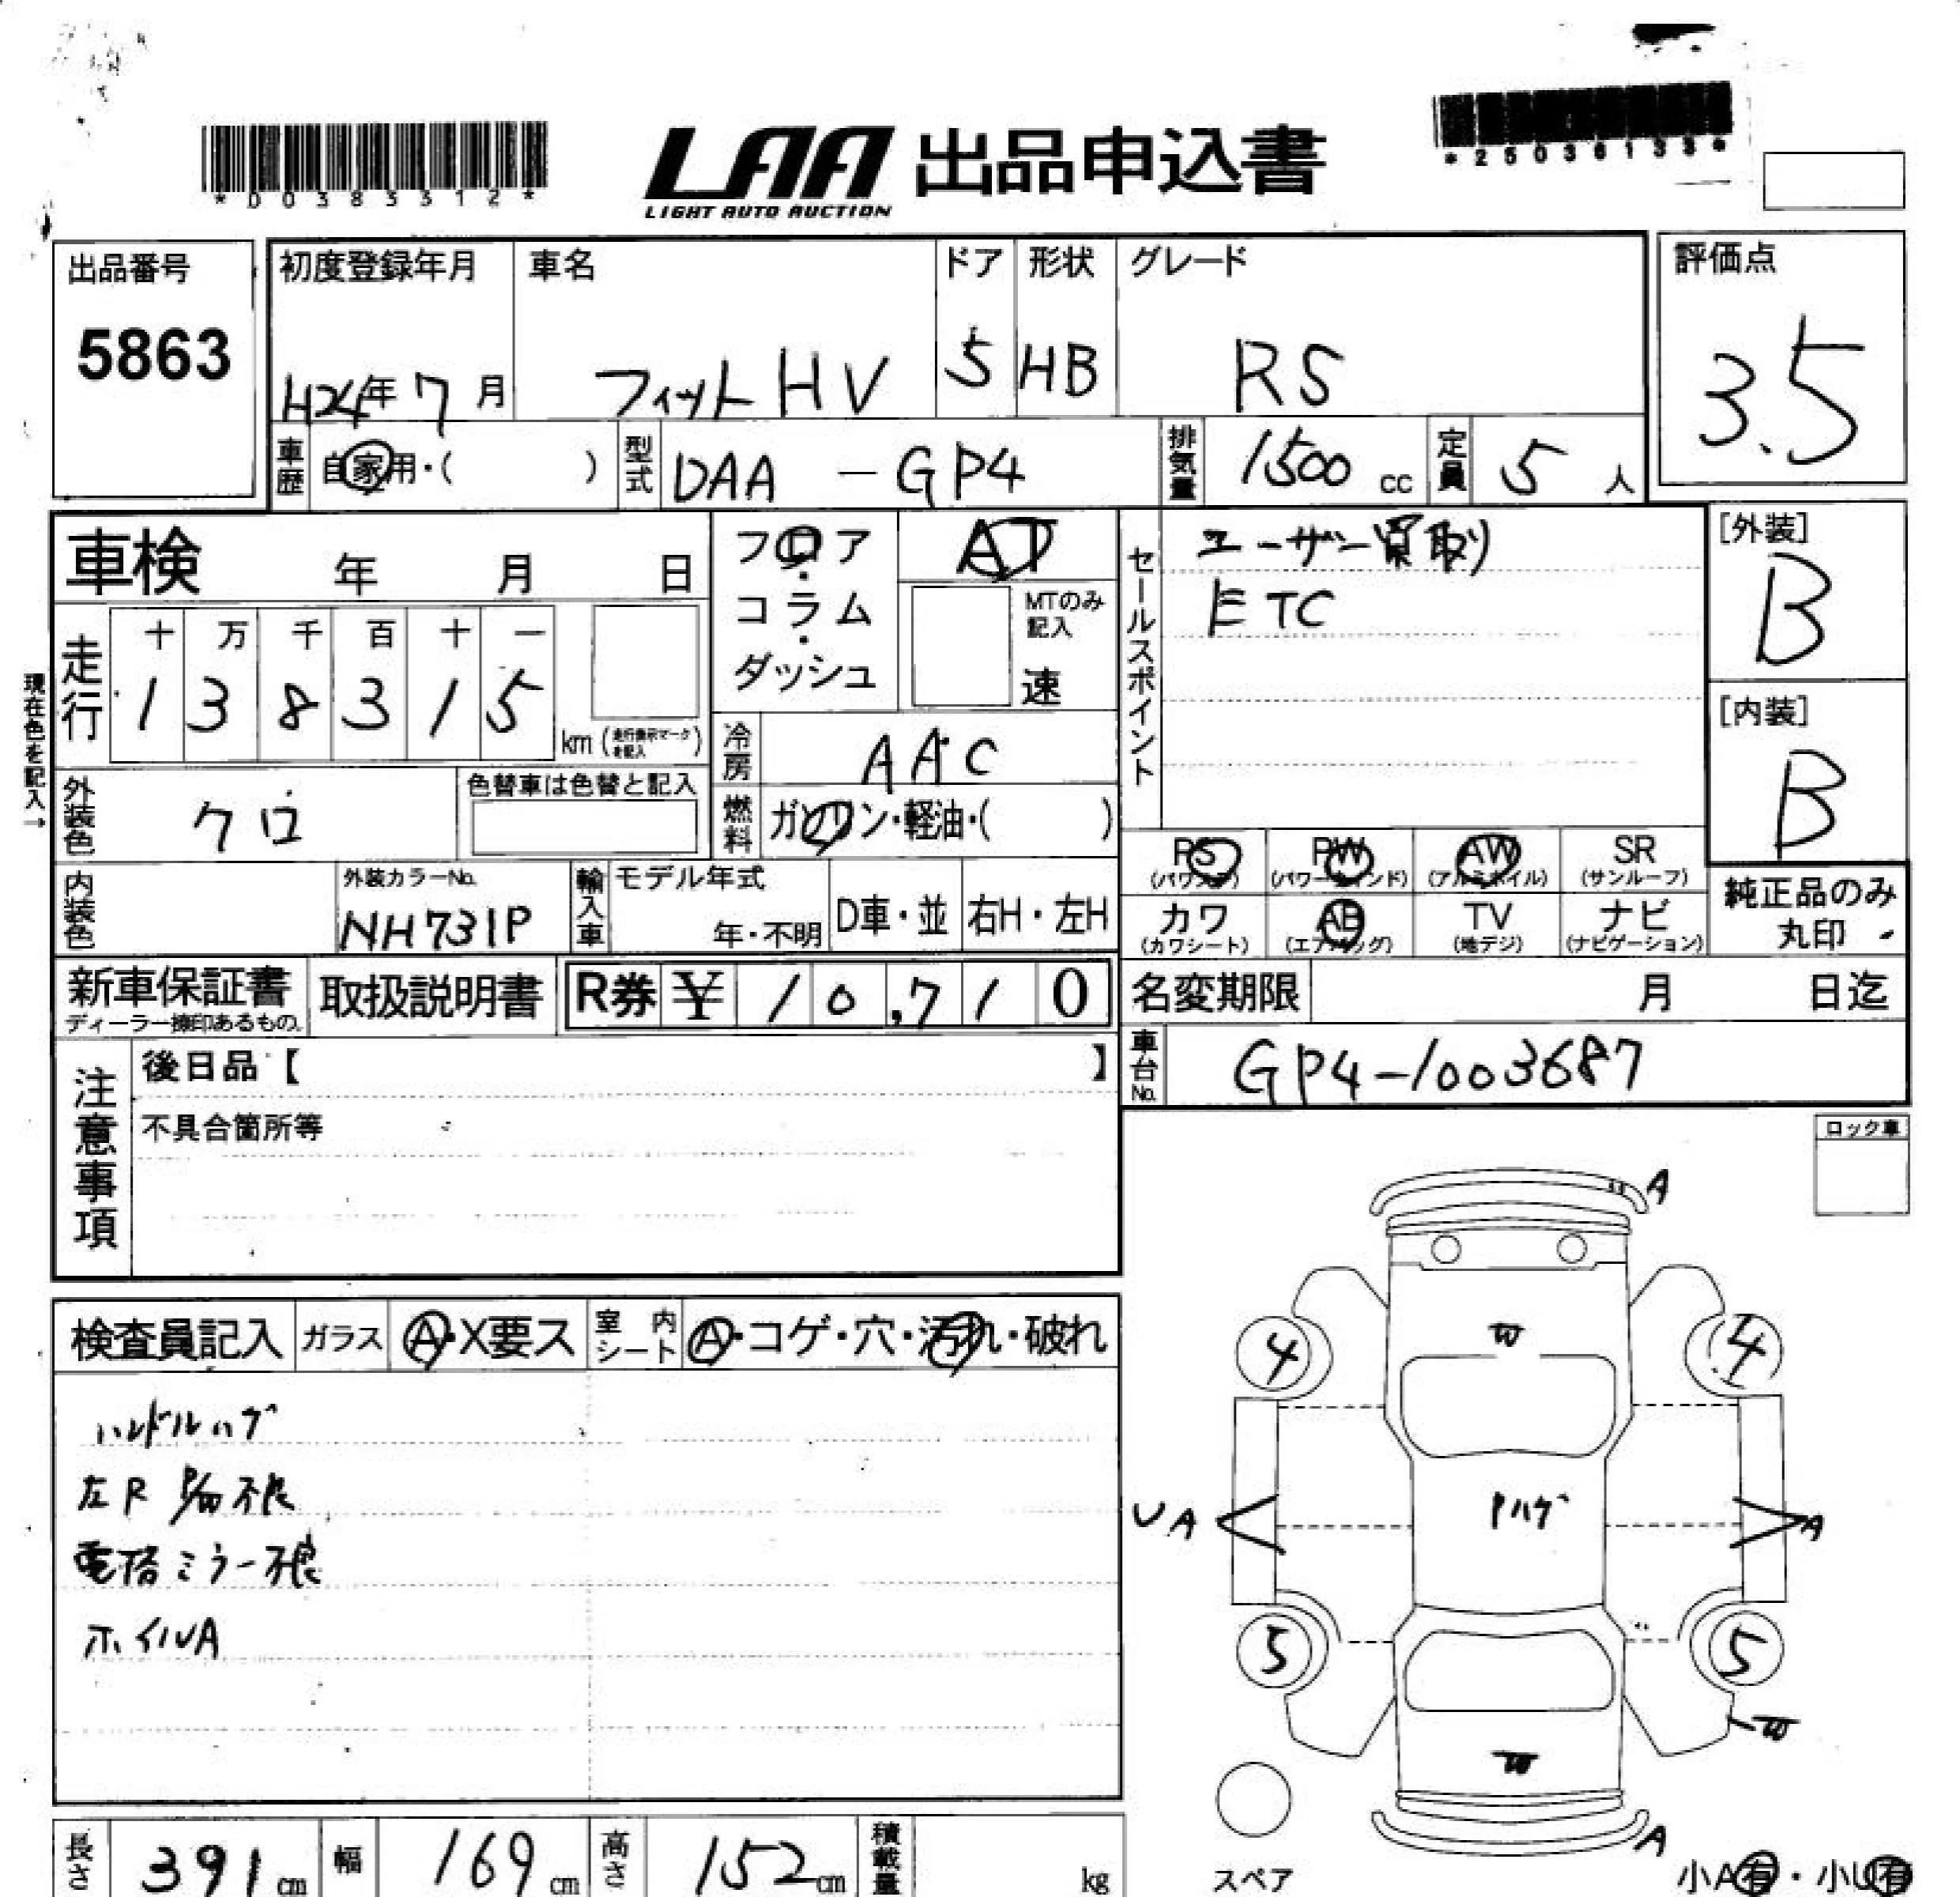 *D0383312*
LAA 出品申込書
LIGHT AUTO AUCTION
*25036133*
出品番号
5863
初度登録年月
H24年7月
車名
フィットHV
ドア
5
形状
HB
グレード
RS
評価点
3.5
車歴
自家用・( )
型式
DAA - GP4
排気量
1500 cc
定員
5 人
車検 年 月 日
フロア・コラム・ダッシュ
AT
MTのみ記入
速
セールスポイント
ユーザー買取り
ETC
[外装]
B
[内装]
B
現在色を記入→
走行
十 万 千 百 十 一
1 3 8 3 1 5
km (走行表示マークを記入)
冷房
AAC
外装色
クロ
色替車は色替と記入
燃料
ガソリン・軽油・( )
PS (パワステ)
PW (パワーウィンド)
AW (アルミホイル)
SR (サンルーフ)
カワ (カワシート)
AB (エアバッグ)
TV (地デジ)
ナビ (ナビゲーション)
純正品のみ丸印
内装色
外装カラーNo.
NH731P
輸入車
モデル年式
年・不明
D車・並
右H・左H
新車保証書
ディーラー捺印あるもの。
取扱説明書
R券 ¥ 10,710
名変期限 月 日迄
車台No.
GP4-1003687
注意事項
後日品【 】
不具合箇所等
ロック車
検査員記入
ガラス
A・X要ス
室内シート
A・コゲ・穴・汚れ・破れ
ハンドルハゲ
左R 不良
電格ミラー不良
ホイルA
A
W
4
4
UA
A
ハゲ
5
5
W
W
A
スペア
小A有・小U有
長さ 391 cm
幅 169 cm
高さ 152 cm
積載量 kg